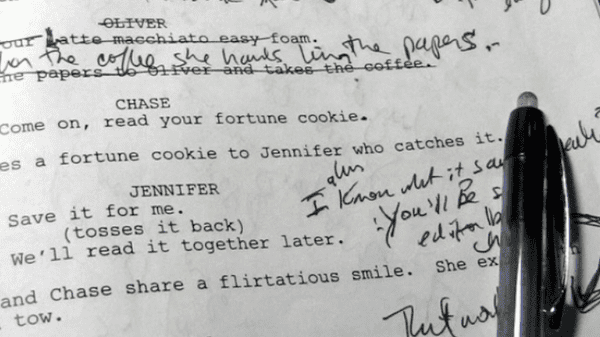 OLIVER
our Latte macchiato easy foam.
the coffee she hands him the papers.
he papers to Oliver and takes the coffee.
CHASE
Come on, read your fortune cookie.
es a fortune cookie to Jennifer who catches it.
JENNIFER
I know what it
Save it for me.
(tosses it back)
"You'll Be
We'll read it together later.
and Chase share a flirtatious smile. She ex
tow.